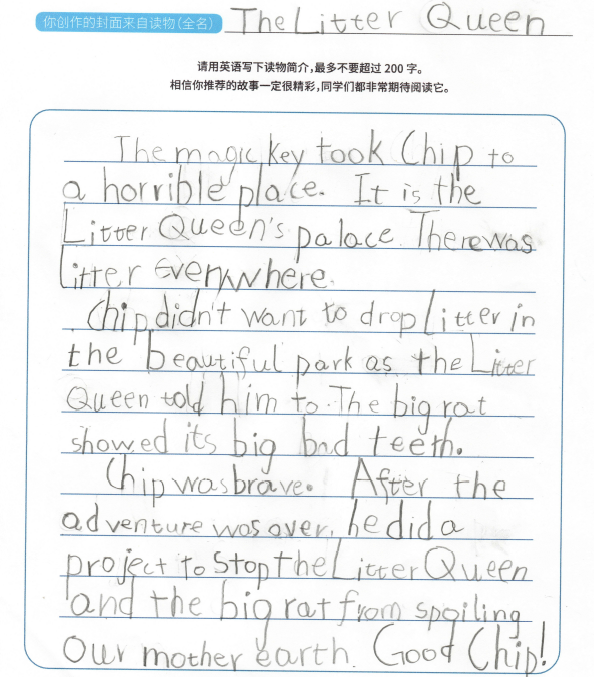 你创作的封面来自读物(全名) The Litter Queen
请用英语写下读物简介,最多不要超过 200 字。
相信你推荐的故事一定很精彩,同学们都非常期待阅读它。
The magic key took Chip to
a horrible place. It is the
Litter Queen's palace. There was
litter everywhere.
Chip didn't want to drop litter in
the beautiful park as the Litter
Queen told him to. The big rat
showed its big bad teeth.
Chip was brave. After the
adventure was over, he did a
project to stop the Litter Queen
and the big rat from spoiling
our mother earth. Good Chip!